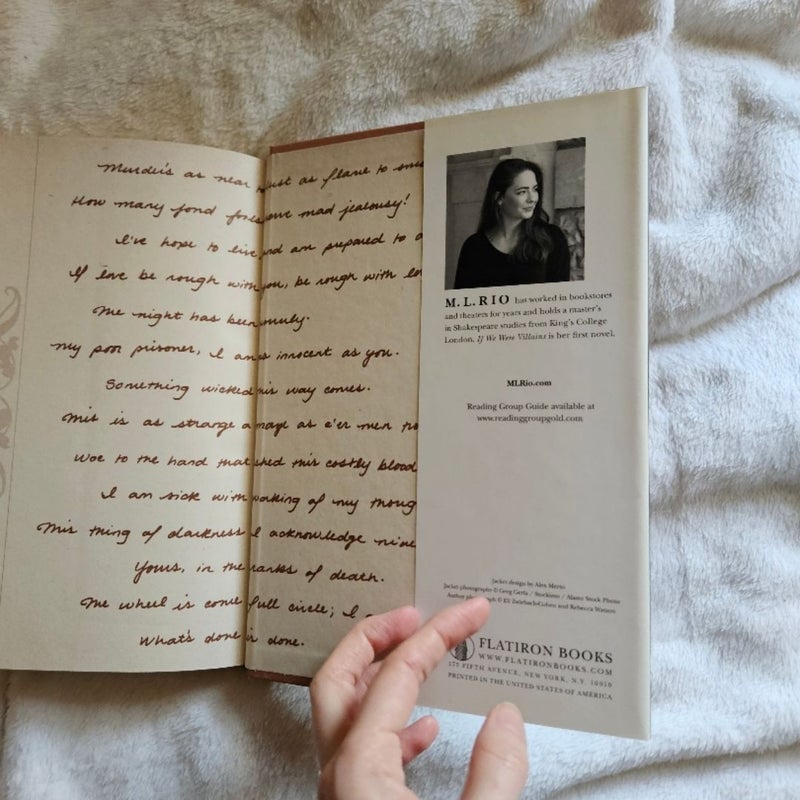 Murder's as near lust as flame to
How many fond fools serve mad jealousy!
I've hope to live and am prepared to
If love be rough with you, be rough with
The night has been unruly.
My poor prisoner, I am as innocent as you.
Something wicked this way comes.
This is as strange a maze as e'er men
Woe to the hand that shed this costly blood
I am sick with working of my
This thing of darkness I acknowledge mine
Yours, in the ranks of death.
The wheel is come full circle; I
What's done is done.
M. L. RIO has worked in bookstores
and theaters for years and holds a master's
in Shakespeare studies from King's College
London. If We Were Villains is her first novel.
MLRio.com
Reading Group Guide available at
www.readinggroupgold.com
Jacket design by Alex Merto
Jacket photographs © Greg Gerla / Stocksy / Alamy Stock Photo
Author photograph © and Rebecca
FLATIRON BOOKS
WWW.FLATIRONBOOKS.COM
175 FIFTH AVENUE, NEW YORK, N.Y. 10010
PRINTED IN THE UNITED STATES OF AMERICA